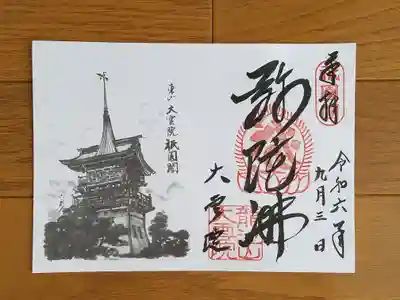 奉拝
令和六年
九月三日
弥陀佛
大雲院
東山 大雲院 祇園閣